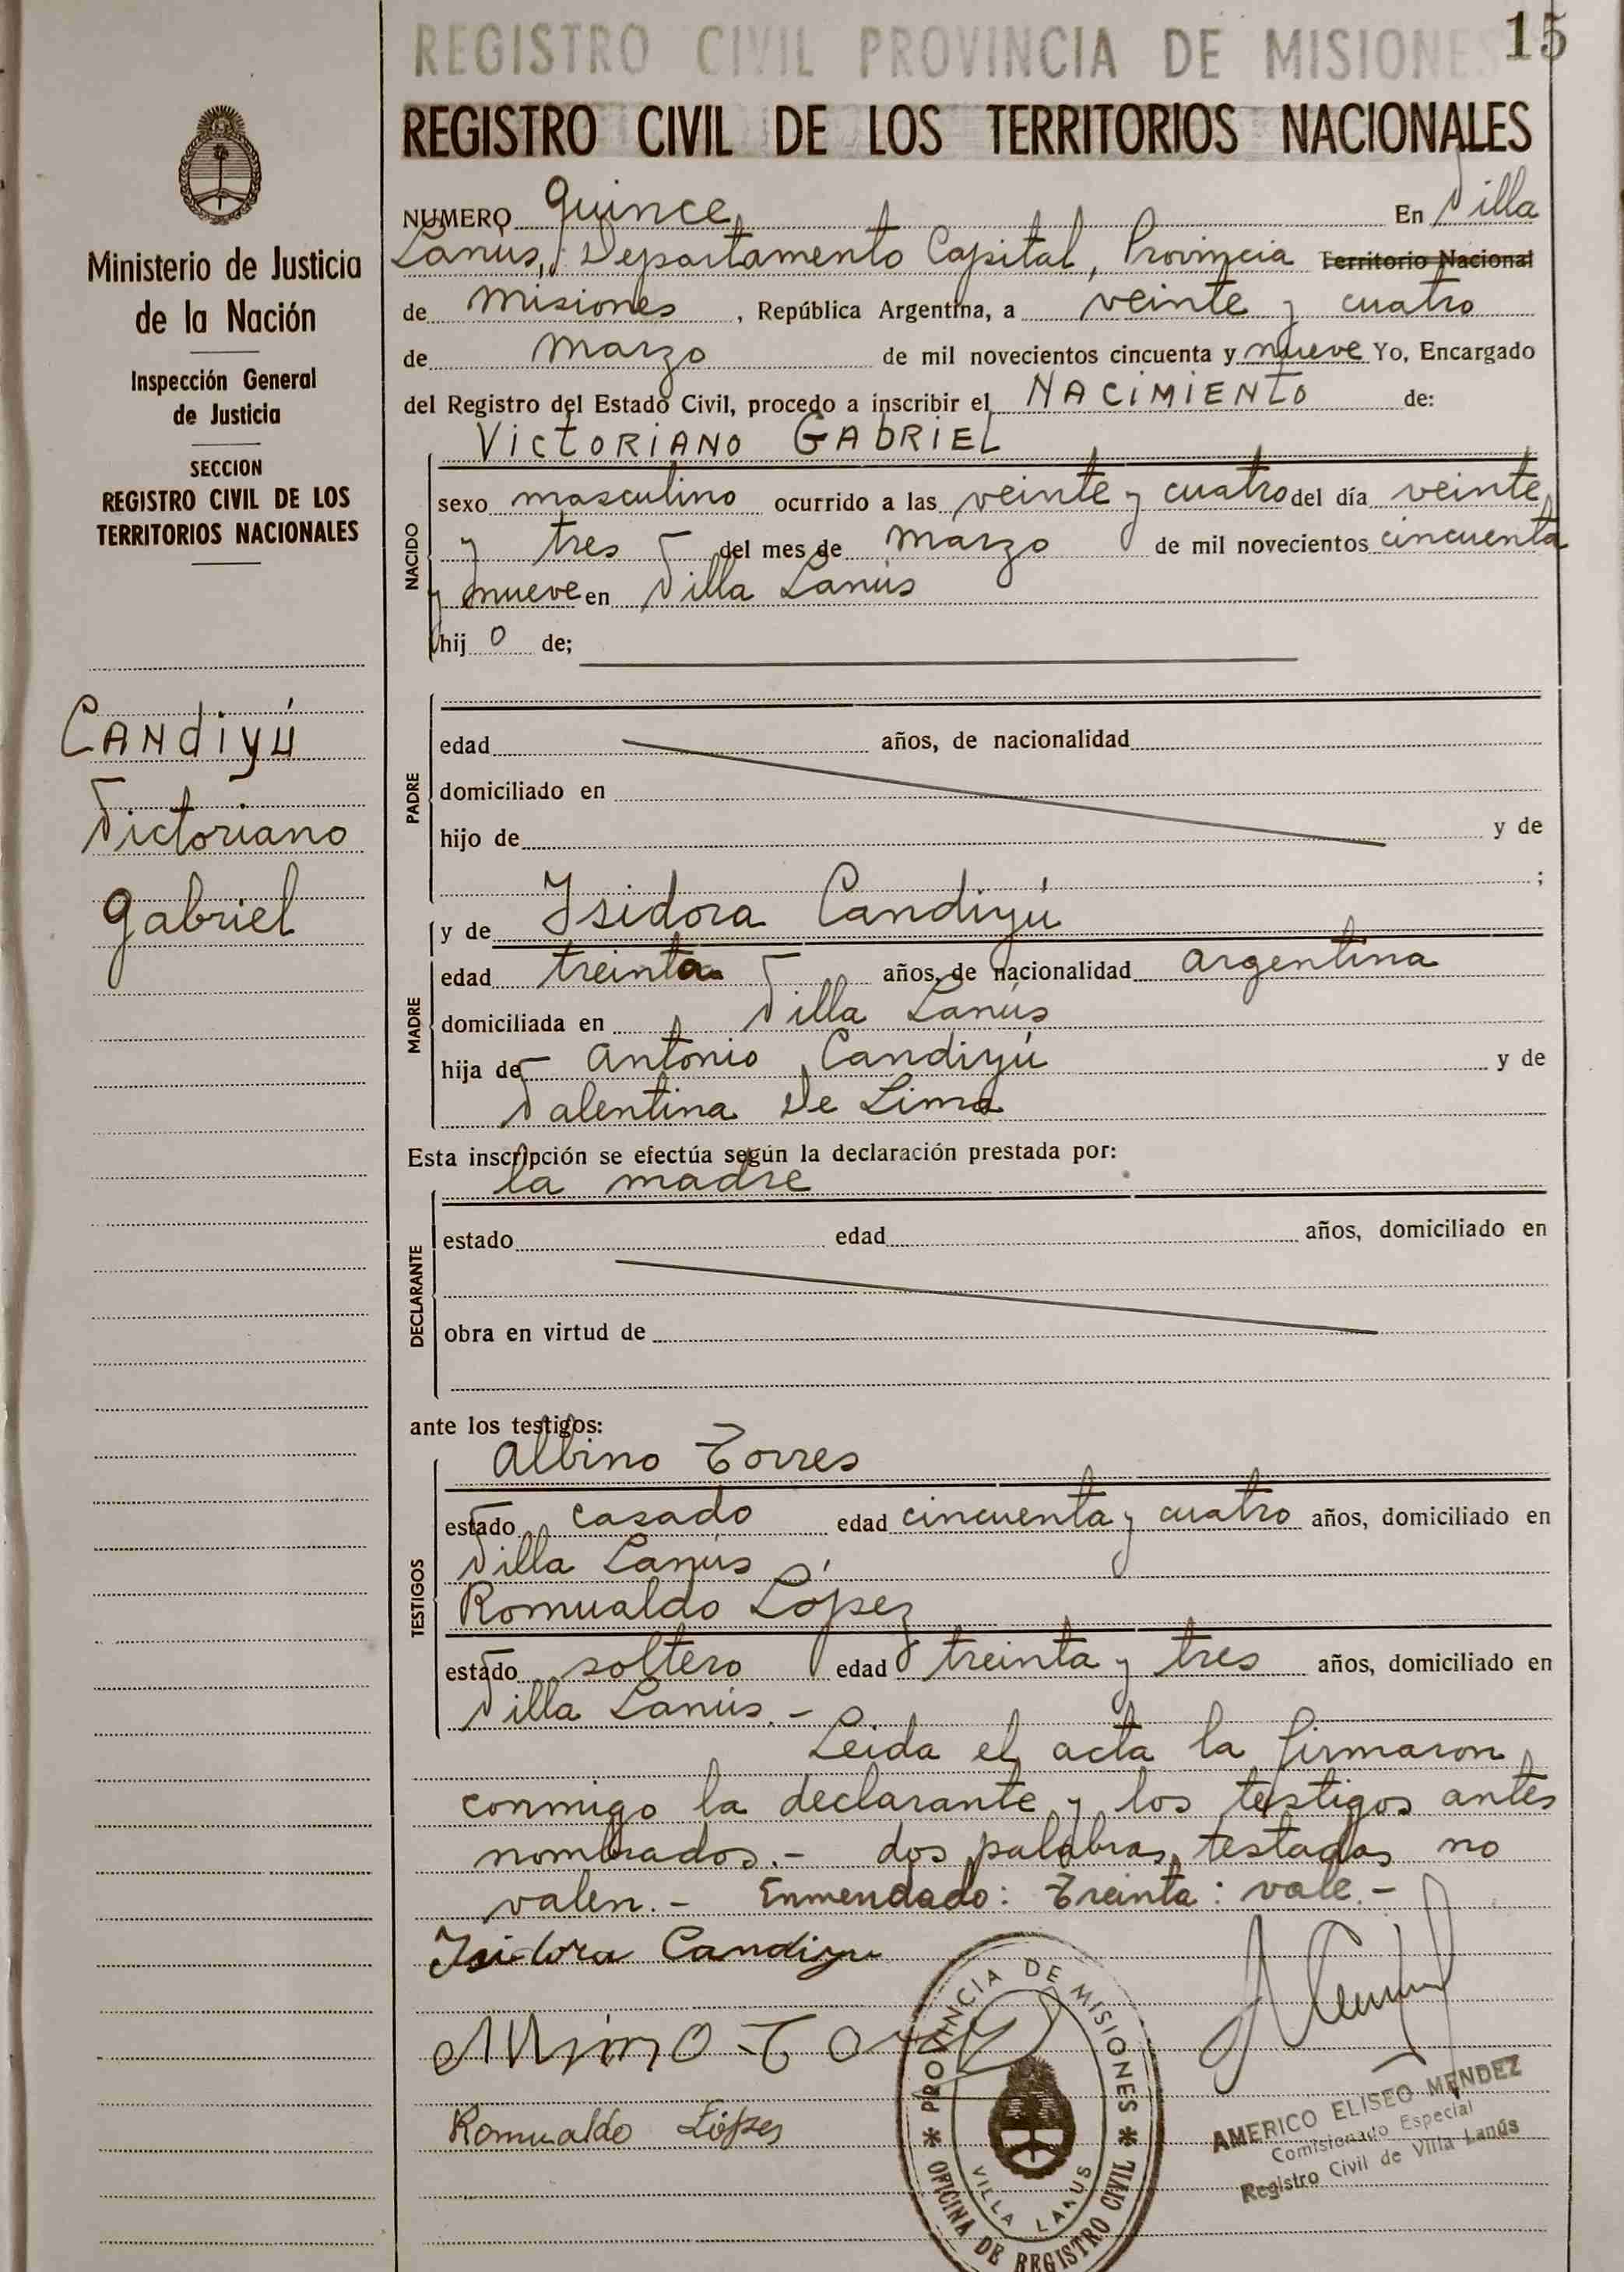 REGISTRO CIVIL PROVINCIA DE MISIONES 15
REGISTRO CIVIL DE LOS TERRITORIOS NACIONALES
Ministerio de Justicia
de la Nación
Inspección General
de Justicia
SECCION
REGISTRO CIVIL DE LOS
TERRITORIOS NACIONALES
Candiyú
Victoriano
Gabriel
NUMERO quince En Villa
Lanus, Departamento Capital, Provincia Territorio Nacional
de Misiones, República Argentina, a veinte y cuatro
de Marzo de mil novecientos cincuenta y nueve Yo, Encargado
del Registro del Estado Civil, procedo a inscribir el NACIMIENTO de:
VICTORIANO GABRIEL
NACIDO
sexo masculino ocurrido a las veinte y cuatro del día veinte
y tres del mes de Marzo de mil novecientos cincuenta
y nueve en Villa Lanús
hij o de;
PADRE
edad años, de nacionalidad
domiciliado en
hijo de y de
;
y de Isidora Candiyú
MADRE
edad treinta años, de nacionalidad argentina
domiciliada en Villa Lanús
hija de Antonio Candiyú y de
Valentina De Lima
Esta inscripción se efectúa según la declaración prestada por:
la madre
DECLARANTE
estado edad años, domiciliado en
obra en virtud de
ante los testigos:
Albino Torres
TESTIGOS
estado casado edad cincuenta y cuatro años, domiciliado en
Villa Lanús
Romualdo López
estado soltero edad treinta y tres años, domiciliado en
Villa Lanús.-
Leida el acta la firmaron
conmigo la declarante y los testigos antes
nombrados.- dos palabras testadas no
valen.- Enmendado: Treinta: vale.-
Isidora Candiyu
Romualdo López
PROVINCIA DE MISIONES
OFICINA DE REGISTRO CIVIL
VILLA LANUS
AMERICO ELISEO MENDEZ
Comisionado Especial
Registro Civil de Villa Lanús